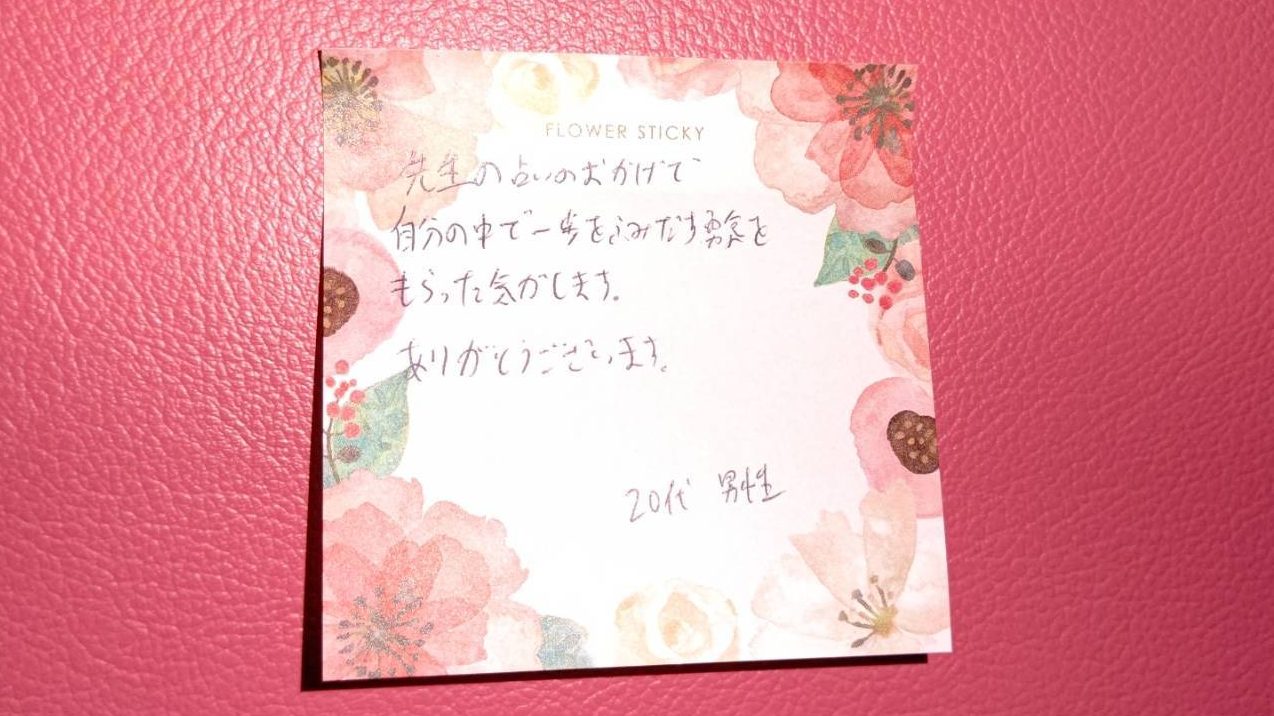 FLOWER STICKY
先生の占いのおかげで
自分の中で一歩をふみだす勇気を
もらった気がします。
ありがとうございます。
20代 男性